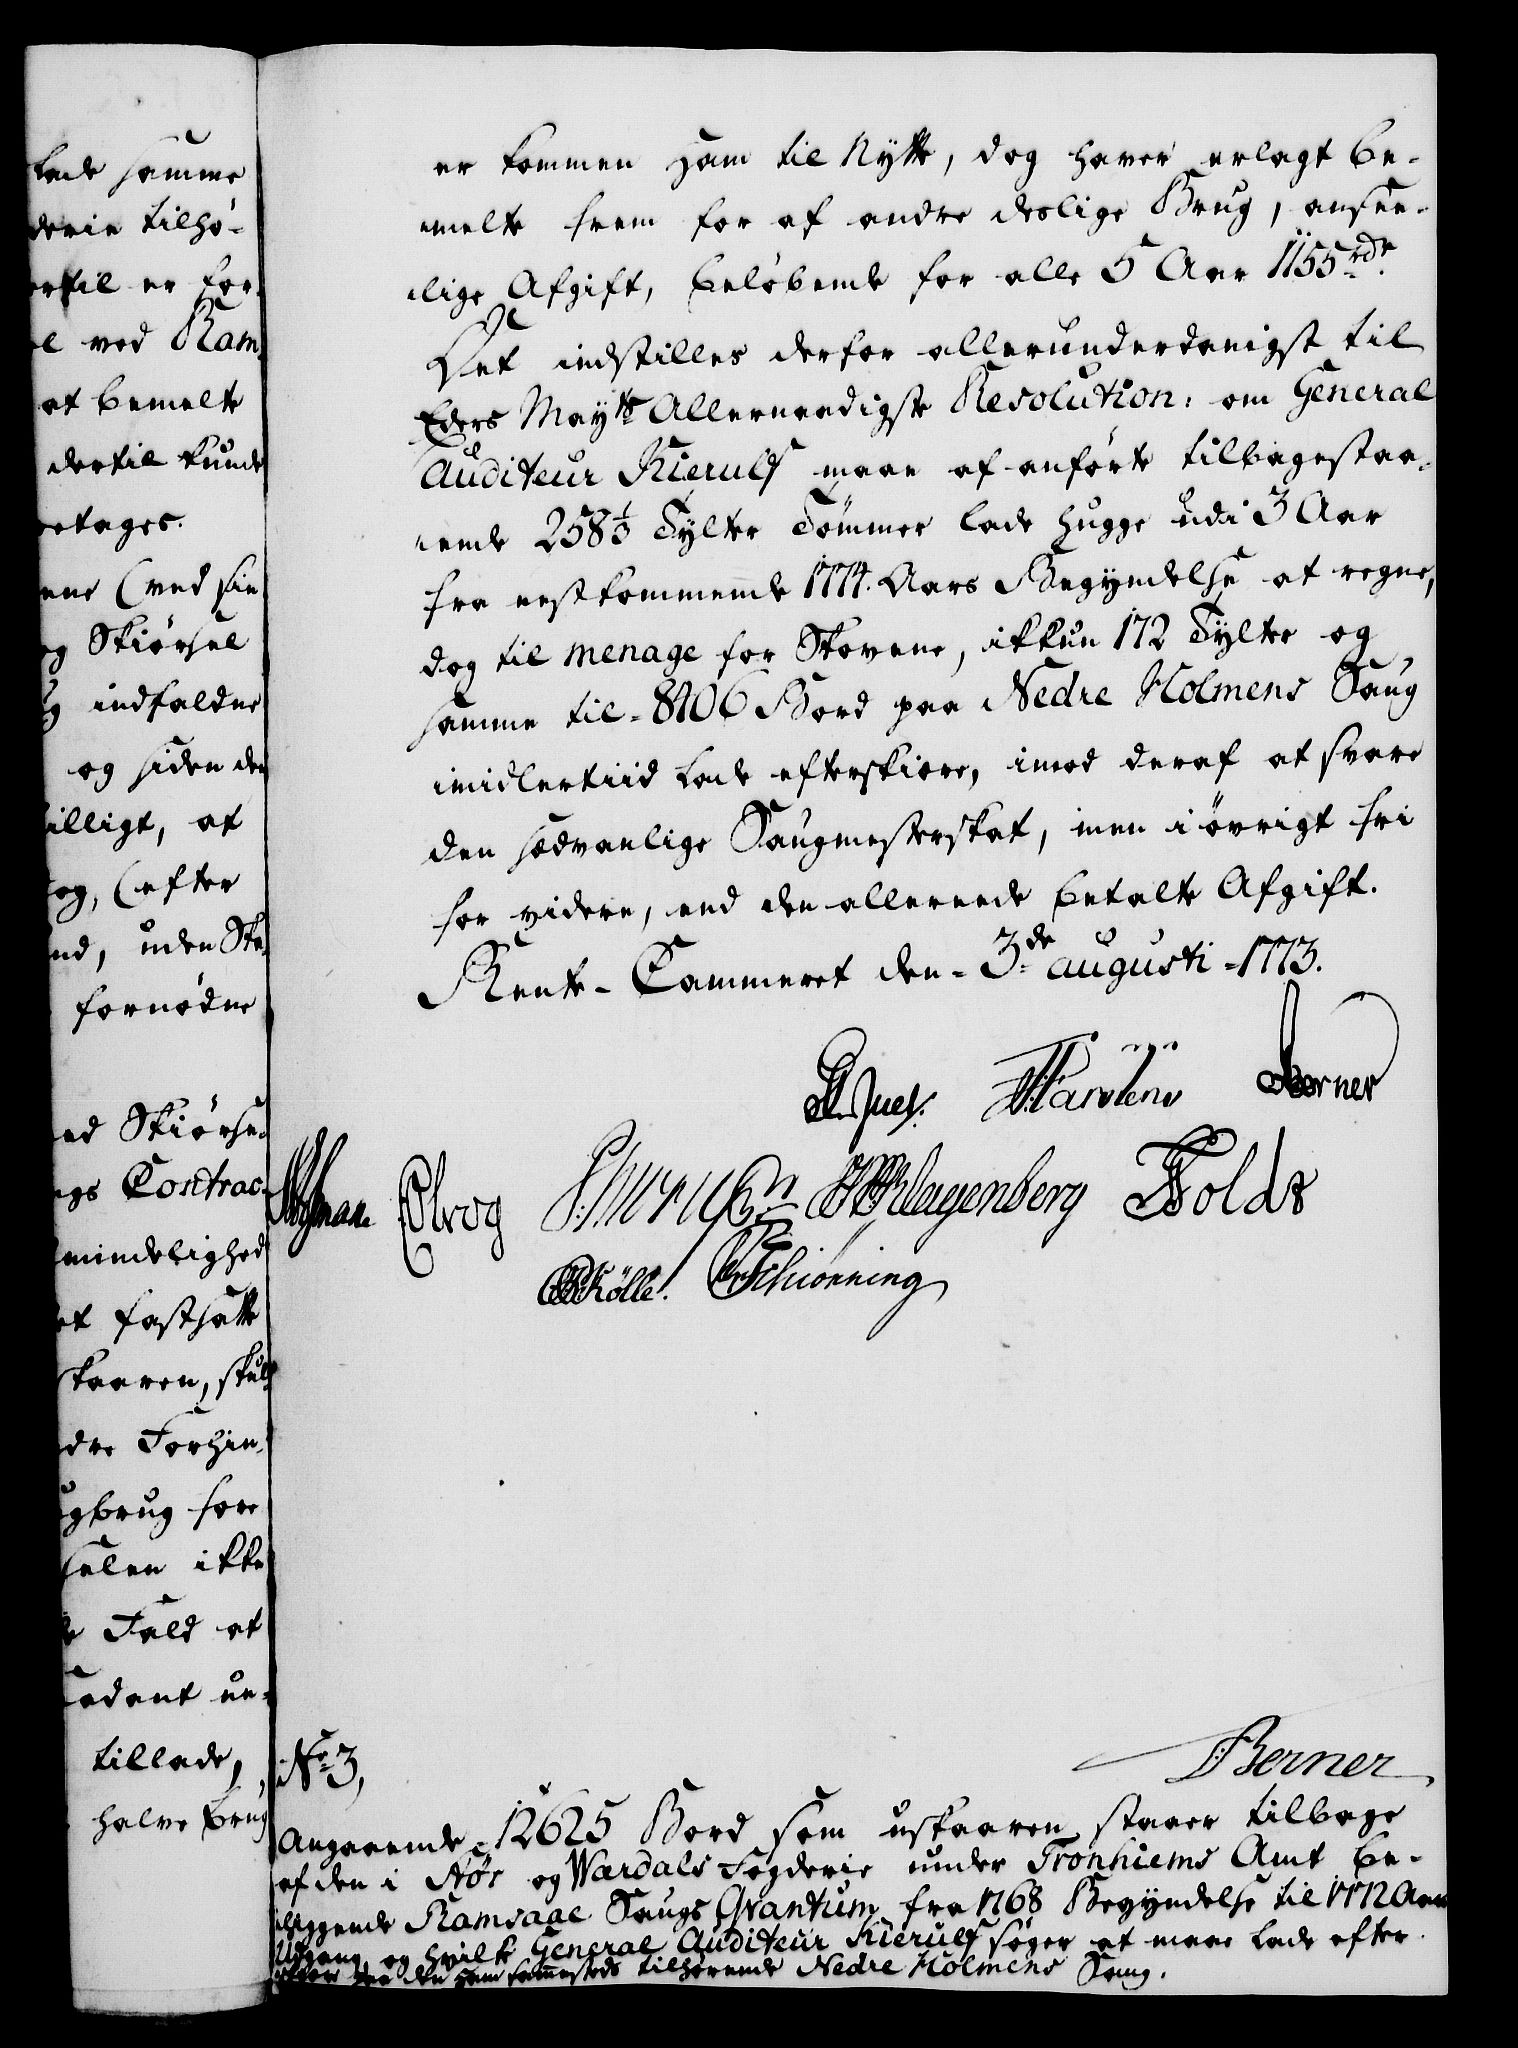 lade samme
derie tilhø-
ertil er for-
l ved Ram-
at bemelte
dertil kunde
retages.
ene (ved sin
og Skiørsel
g indfaldne
og siden den
illigt, at
og, (efter
nd, uden Ska-
fornødne
ed Skiørse-
ngs Contrac-
mindelighed
et fastsatte
skaaren, skul-
dre Forhin-
gbrug fore
selen ikke
Fald at
saadant ue-
tillade,
halve brug
er kommen ham til Nytte, dog haver erlagt be-
melte frem for af andre deslige Brug, ansee-
lige Afgift, beløbende for alle 5 Aar 1155 rdr.
Det indstilles derfor allerunderdanigst til
Eders Mayts Allernaadigste Resolution: om General
Auditeur Kierulf maae af anførte tilbagestaa-
ende 258 1/3 Tylter Tømmer lade hugge udi 3 Aar
fra nestkommende 1774. Aars Begyndelse at regne,
dog til menage for Skovene, ikkun 172 Tylter og
samme til 8406 Bord paa Nedre Holmens Saug
imidlertiid lade efterskiære, imod deraf at svare
den sædvanlige Saugmesterskat, men i øvrigt fri
for videre, end den allerede betalte Afgift.
Rente-Cammeret den 3de augusti 1773.
Juel. Berner
Elvog Klagenberg Holdt
Kölle. Schiønning
No 3,
Berner
Angaaende 12625 Bord som uskaaren staaer tilbage
af den i Stør og Wardals Fogderie under Tronhiems Amt be-
liggende Ramsaae Saugs Qvantum fra 1768 Begyndelse til 1772 Aars
Udgang og hvilke General Auditeur Kierulf søger at maae lade efter-
skiære paa den ham sammesteds tilhørende Nedre Holmens Saug.